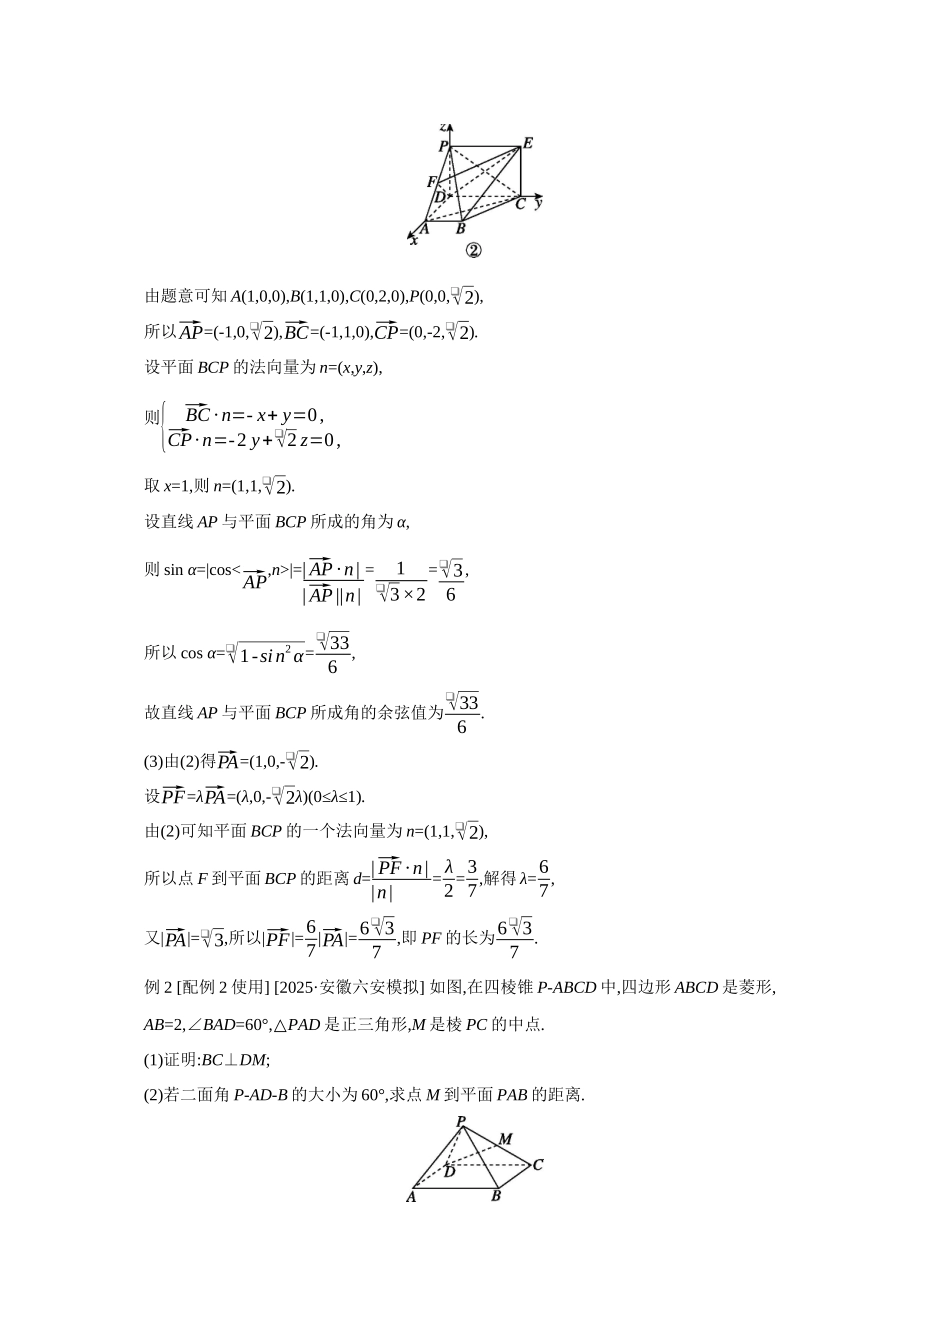 z
P E
F
D C y
A B
x
②
由题意可知 A(1,0,0),B(1,1,0),C(0,2,0),P(0,0,√2),
所以AP=(-1,0,√2),BC=(-1,1,0),CP=(0,-2,√2).
设平面 BCP 的法向量为 n=(x,y,z),
则{BC·n=-x+y=0,
CP·n=-2y+√2z=0,
取 x=1,则 n=(1,1,√2).
设直线 AP 与平面 BCP 所成的角为 α,
则 sin α=|cos<AP,n>|=|AP·n|/|AP||n|=1/(√3×2)=√3/6,
所以 cos α=√(1-sin²α)=√33/6,
故直线 AP 与平面 BCP 所成角的余弦值为√33/6.
(3)由(2)得PA=(1,0,-√2).
设PF=λPA=(λ,0,-√2λ)(0≤λ≤1).
由(2)可知平面 BCP 的一个法向量为 n=(1,1,√2),
所以点 F 到平面 BCP 的距离 d=|PF·n|/|n|=λ/2=3/7,解得 λ=6/7,
又|PA|=√3,所以|PF|=6/7|PA|=6√3/7,即 PF 的长为6√3/7.
例 2 [配例 2 使用] [2025·安徽六安模拟] 如图,在四棱锥 P-ABCD 中,四边形 ABCD 是菱形,
AB=2,∠BAD=60°,△PAD 是正三角形,M 是棱 PC 的中点.
(1)证明:BC⊥DM;
(2)若二面角 P-AD-B 的大小为 60°,求点 M 到平面 PAB 的距离.
P
M
D C
A B